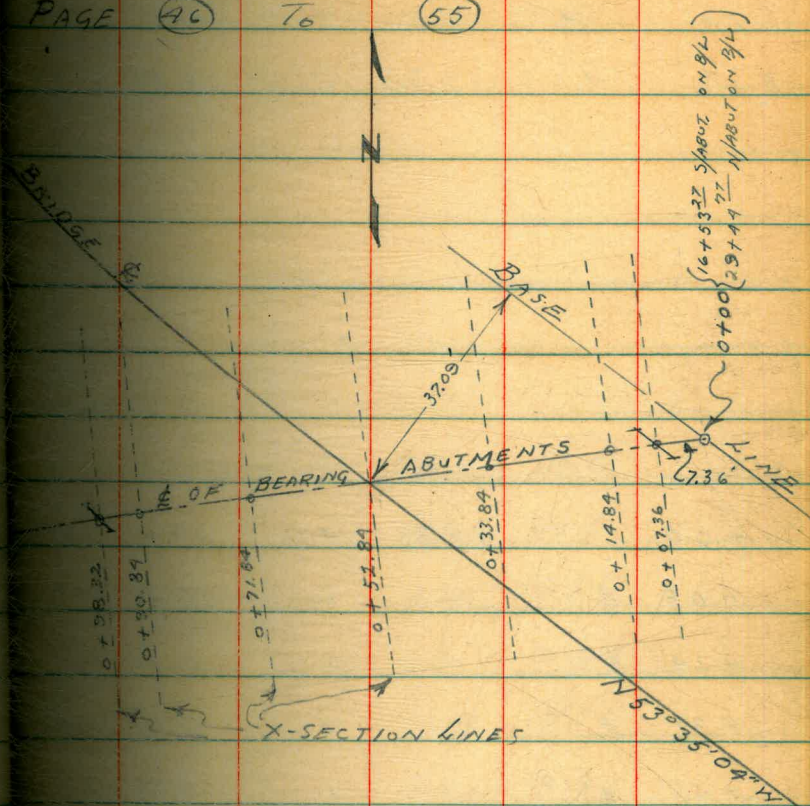 PAGE 46 TO 55
N
BRIDGE
BASE
LINE
0+00 {16+53.27 S/ABUT. ON B/L
29+44.77 N/ABUT ON B/L}
37.09'
℄ OF BEARING ABUTMENTS
7.36'
0+98.22
0+90.84
0+71.84
0+52.84
0+33.84
0+14.84
0+07.36
X-SECTION LINES
N 53° 35' 04" W